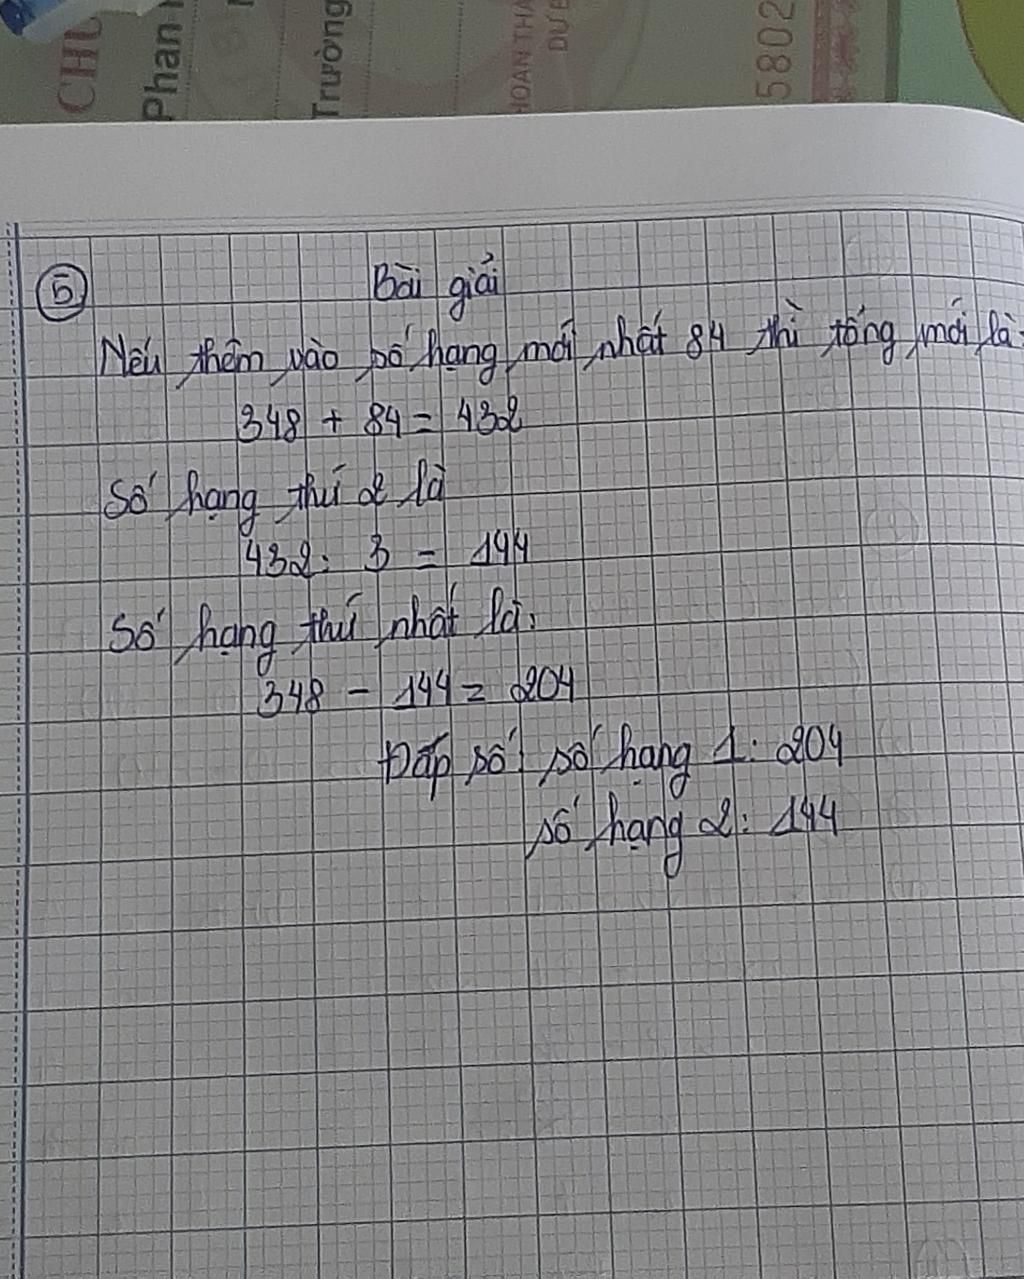 CHỨ
Phan
Trường
HOAN THA
DỰ B
5802
5 Bài giải
Nếu thêm vào số hạng mới nhất 84 thì tổng mới là:
348 + 84 = 432
Số hạng thứ 2 là
432 : 3 = 144
Số hạng thứ nhất là:
348 - 144 = 204
Đáp số: số hạng 1: 204
số hạng 2: 144